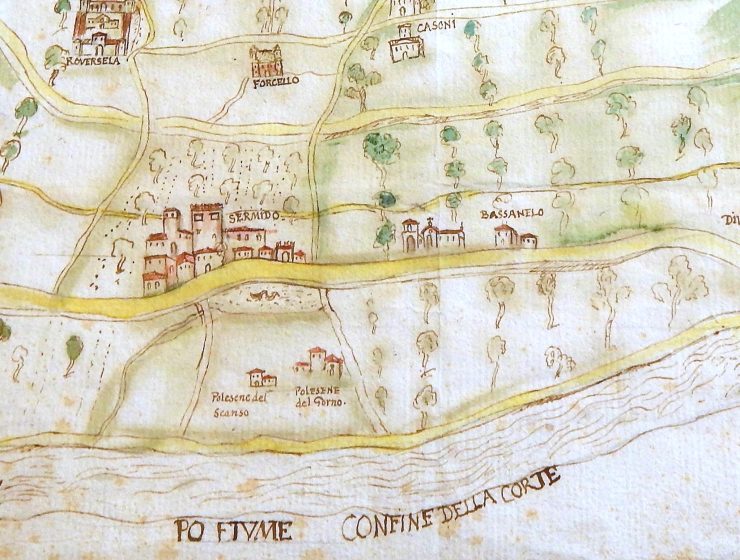 CASONI
ROVERSELA
FORCELLO
SERMIDO
BASSANELO
Polesene del
Scanso
POLESENE
del Gorno.
PO FIVME
CONFINE DELLA CORTE